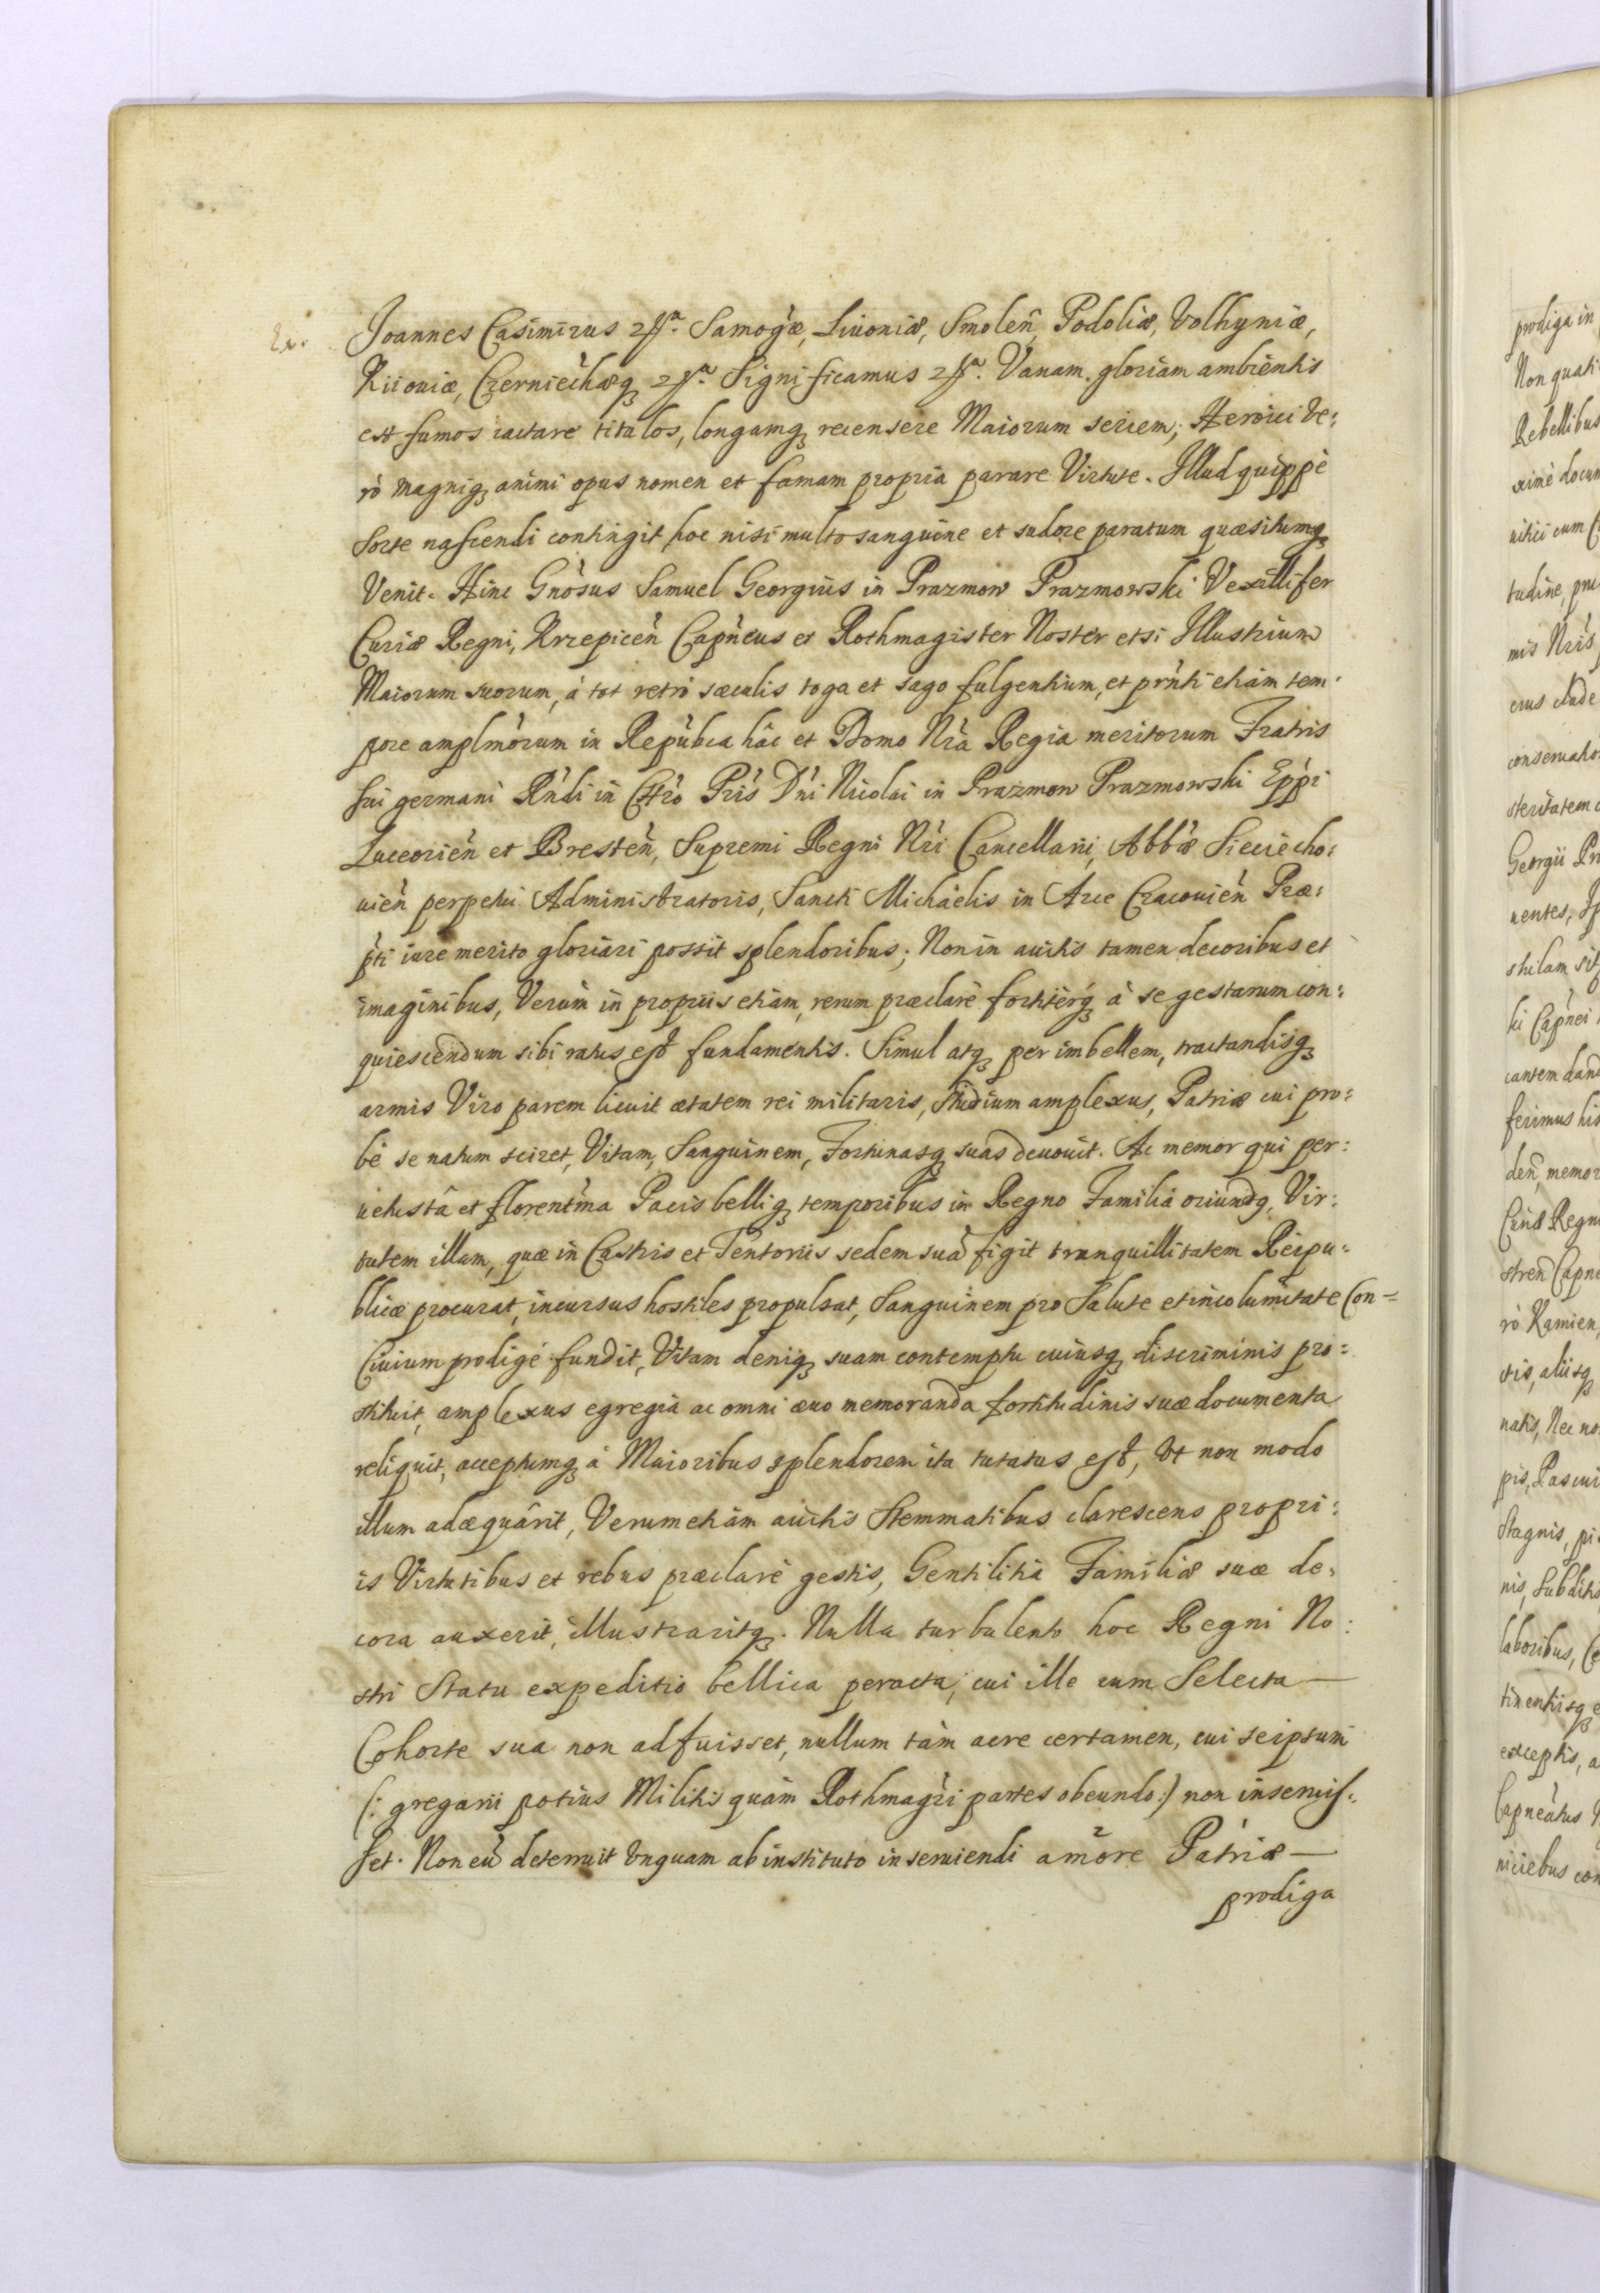 Ex.
Joannes Casimirus &c. Samogæ, Liuoniæ, Smolen, Podoliæ, Volhyniæ,
Kiioniæ, Czerniechæq &c. Significamus &c. Vanam gloriam ambientis
est fumos iactare titulos, longamq recensere Maiorum seriem; Heroici ve:
rò magniq animi opus nomen et famam propria parare Virtute. Illud quippè
Sorte nascendi contingit, hoc nisi multo sanguine et sudore paratum quæsitumq
Venit. Hinc Gnosus Samuel Georgius in Prazmow Prazmowski Vexillifer
Curiæ Regni, Krzepicen Capneus et Rothmagister Noster etsi Illustrium
Maiorum suorum, à tot retrò sæculis toga et sago fulgentium, et prnti etiam tem:
pore amplmorum in Repubca hâc et Domo Nra Regia meritorum Fratris
sui germani Rndi in Chro Pris Dni Nicolai in Prazmow Prazmowski Eppi
Luceorien et Bresten, Supremi Regni Nri Cancellarii, Abbæ Sieciecho:
uien perpetui Administratoris, Sancti Michaëlis in Arce Cracouien Præ:
pti iure merito gloriari possit splendoribus; Non in auitis tamen decoribus et
imaginibus, Verùm in propriis etiam, rerum præclarè fortitèrq à se gestarum con:
quiescendum sibi ratus est fundamentis. Simul atq per imbellem, tractandisq
armis Viro parem licuit ætatem rei militaris, studium amplexus, Patriæ cui pro:
bè se natum sciret, Vitam, Sanguinem, Fortunasq suas deuouit. Ac memor qui per:
uetustâ et florentma Pacis belliq temporibus in Regno Familiâ oriundq, Vir:
tutem illam, quæ in Castris et Tentoriis sedem suã figit tranquillitatem Reipu:
blicæ procurat, incursus hostiles propulsat, Sanguinem pro Salute et incolumitate Con=
Ciuium prodigè fundit, Vitam deniq suam contemptu cuiusq discriminis pro:
stituit, amplexus egregia ac omni æuo memoranda fortitudinis suæ documenta
reliquit, acceptumq à Maioribus splendorem ita tutatus est, Vt non modo
illum adæquârit, Verumetiàm auitis Stemmatibus clarescens propri:
is Virtutibus et rebus præclarè gestis, Gentilitia Familiæ suæ de:
cora auxerit, illustraritq. Nulla turbulento hoc Regni No:
stri Statu expeditio bellica peracta, cui ille cum Selecta —
Cohorte sua non adfuisset, nullum tàm acre certamen, cui seipsum
(: gregarii potius Militis quàm Rothmagri partes obeundo :) non inseruis:
set. Non eũ deterruit Vnquam ab instituto inseruiendi amore Patriæ —
prodiga